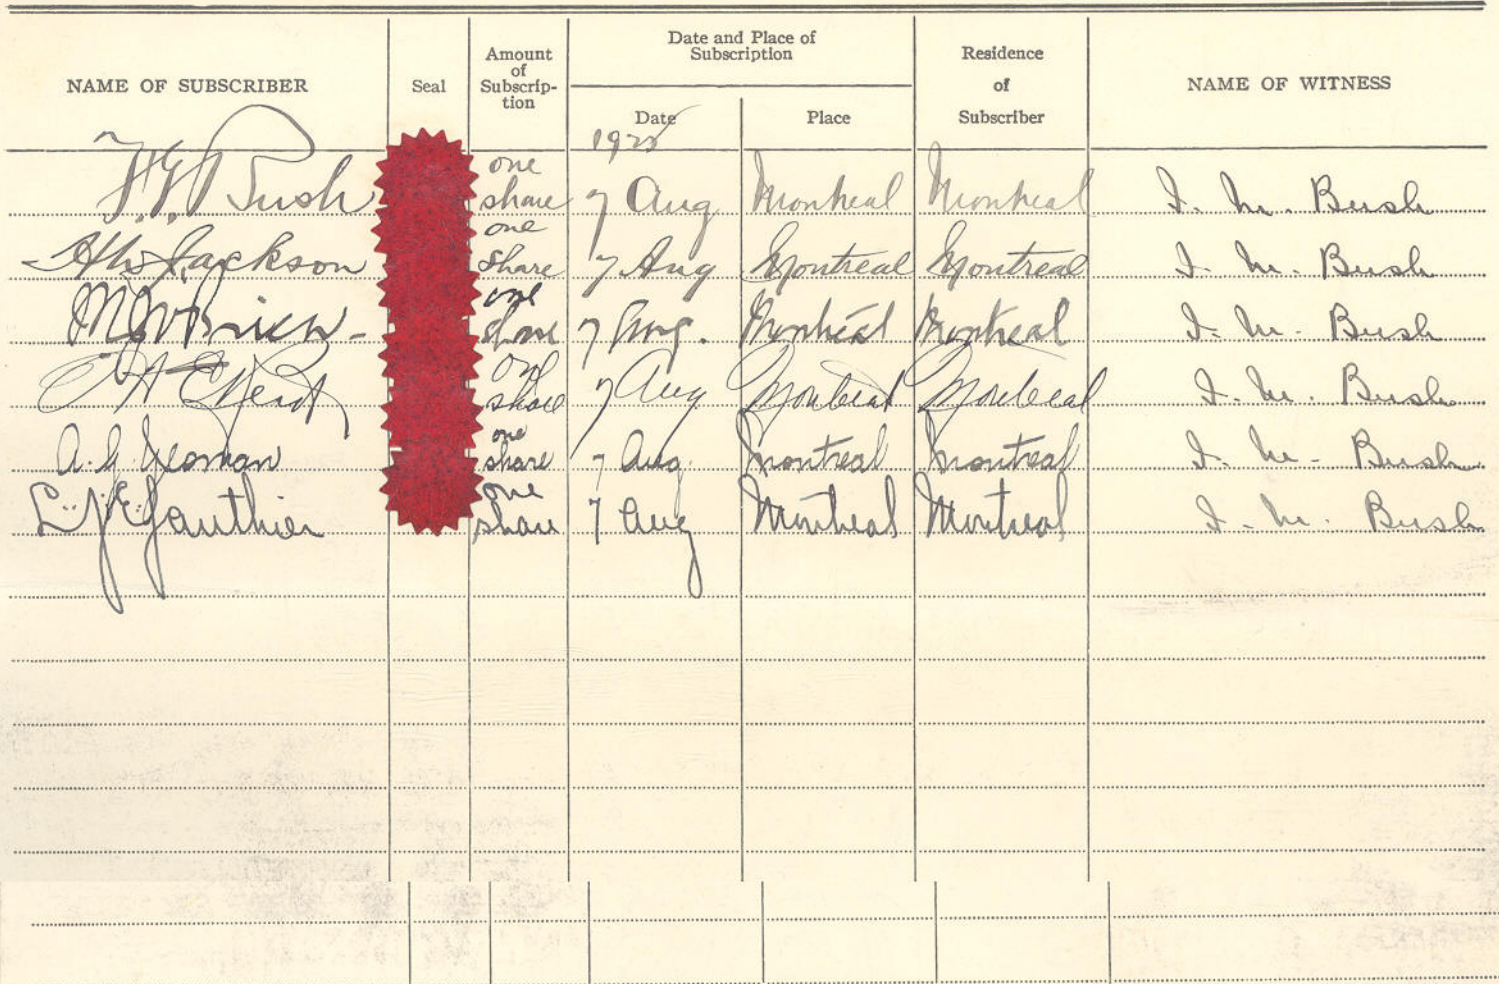 Date and Place of Subscription
NAME OF SUBSCRIBER Seal Amount of Subscrip- tion Date Place Residence of Subscriber NAME OF WITNESS
F.G. Bush one share 7 Aug Montreal Montreal I. M. Bush
Jackson one share 7 Aug Montreal Montreal I. M. Bush
one share 7 Aug. Montreal Montreal I. M. Bush
one share 7 Aug Montreal Montreal I. M. Bush
A. G. Yeoman one share 7 Aug. Montreal Montreal I. M. Bush
L. J. E. Gauthier one share 7 Aug Montreal Montreal I. M. Bush